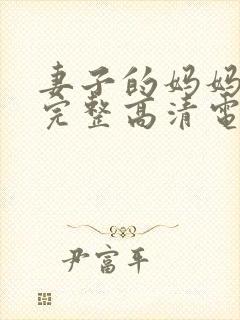 妻子的妈妈
完整高清电
尹富平